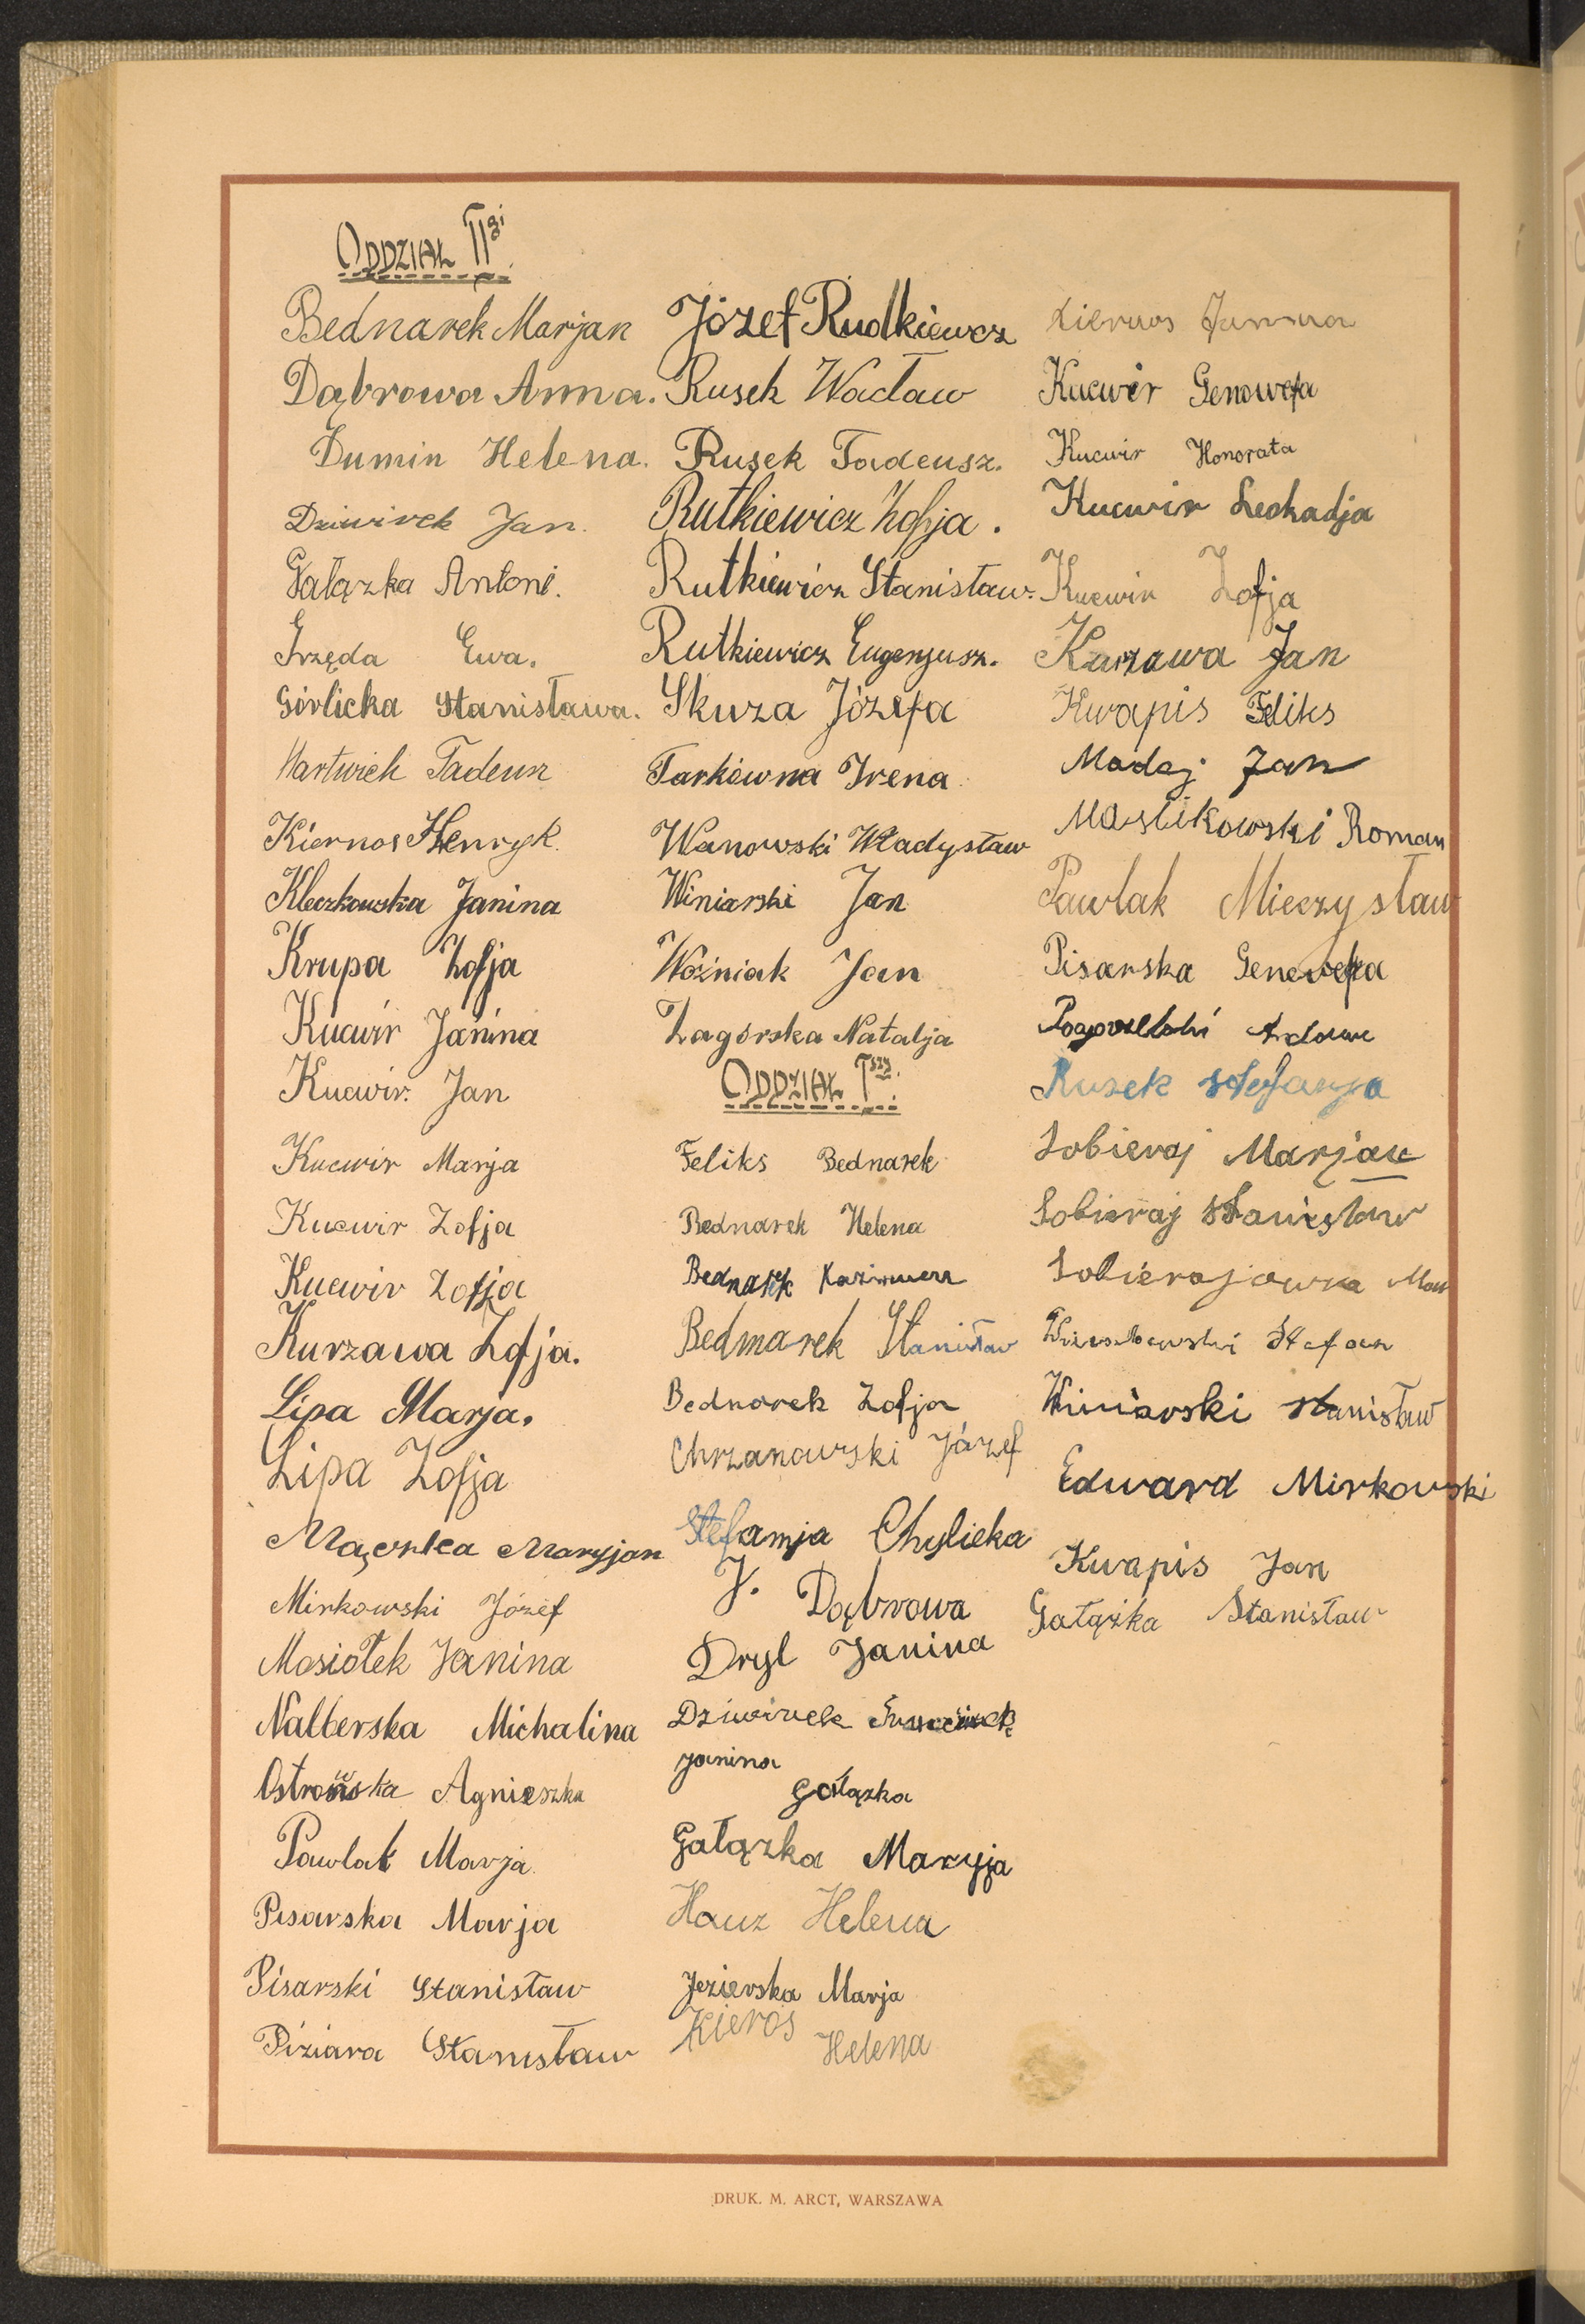 ODDZIAŁ IIgi.
Bednarek Marjan
Dąbrowa Anna.
Dumin Helena.
Dziwirek Jan.
Gałązka Antoni.
Grzęda Ewa.
Górlicka Stanisława.
Hartwich Tadeusz
Kiernos Henryk.
Kleczkowska Janina
Krupa Zofja
Kucwir Janina
Kucwir. Jan
Kucwir Marja
Kucwir Zofja
Kucwir Zofja
Kurzawa Zofja.
Lipa Marja.
Lipa Zofja
Maryjan
Mirkowski Józef
Mosiołek Janina
Nalberska Michalina
Ostrowska Agnieszka
Pawlak Marja.
Pisarska Marja
Pisarski Stanisław
Piziara Stanisław
Józef Rudkiewcz
Rusek Wacław
Rusek Tadeusz.
Rutkiewicz Zofja.
Rutkiewicz Stanisław.
Rutkiewicz Eugenjusz.
Skuza Józefa
Tarkówna Irena
Wanowski Władysław
Winiarski Jan
Woźniak Jan
Zagórska Natalja
ODDZIAŁ Iszy.
Feliks Bednarek
Bednarek Helena
Bednarek Kazimierz
Bednarek Stanisław
Bednarek Zofja
Chrzanowski Józef
Stefamja Chylicka
J. Dąbrowa
Dryl Janina
Dziwirek
Janina
Gałązka
Gałązka Maryja
Hauz Helena
Jezierska Marja
Kieros
Helena
Kiernos Janina
Kucwir Genowefa
Kucwir Honorata
Kucwir Leokadja
Kucwir Zofja
Kurzawa Jan
Kwapis Feliks
Madej Jan
Maslikowski Roman
Pawlak Mieczysław
Pisarska Genowefa
Rusek Stefanja
Sobieraj Marjan
Sobieraj Stanisław
Sobierajowna
Stefan
Winiarski Stanisław
Edward Mirkowski
Kwapis Jan
Gałązka Stanisław
DRUK. M. ARCT, WARSZAWA